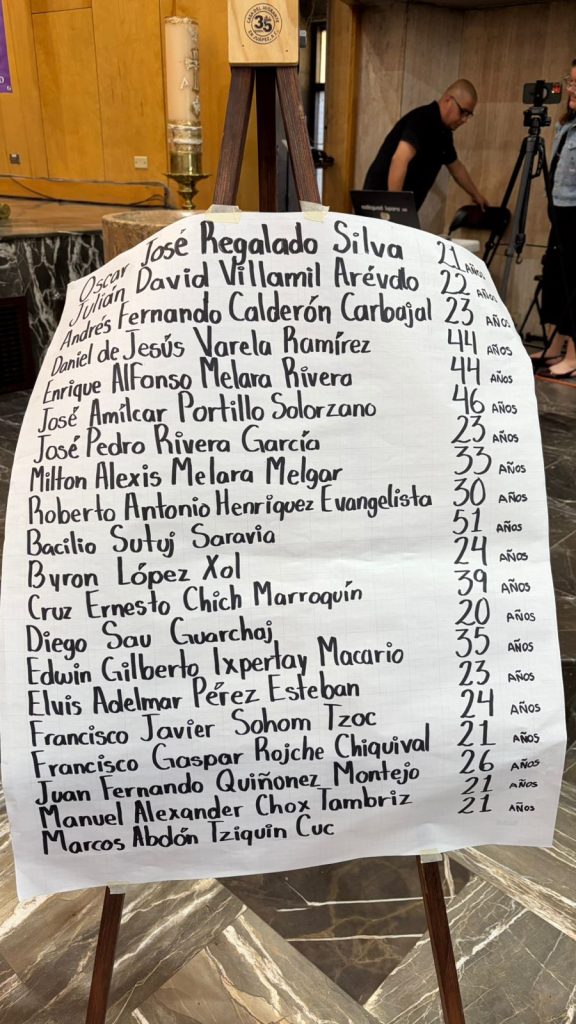 CASA DEL MIGRANTE
35
EN JUÁREZ, A.C.
Oscar José Regalado Silva 21 AÑOS
Julián David Villamil Arévalo 22 AÑOS
Andrés Fernando Calderón Carbajal 23 AÑOS
Daniel de Jesús Varela Ramírez 44 AÑOS
Enrique Alfonso Melara Rivera 44 AÑOS
José Amílcar Portillo Solorzano 46 AÑOS
José Pedro Rivera García 23 AÑOS
Milton Alexis Melara Melgar 33 AÑOS
Roberto Antonio Henriquez Evangelista 30 AÑOS
Bacilio Sutuj Saravia 51 AÑOS
Byron López Xol 24 AÑOS
Cruz Ernesto Chich Marroquín 39 AÑOS
Diego Sau Guarchaj 20 AÑOS
Edwin Gilberto Ixpertay Macario 35 AÑOS
Elvis Adelmar Pérez Esteban 23 AÑOS
Francisco Javier Sohom Tzoc 24 AÑOS
Francisco Gaspar Rojche Chiquival 21 AÑOS
Juan Fernando Quiñonez Montejo 26 AÑOS
Manuel Alexander Chox Tambriz 21 AÑOS
Marcos Abdón Tziquin Cuc 21 AÑOS